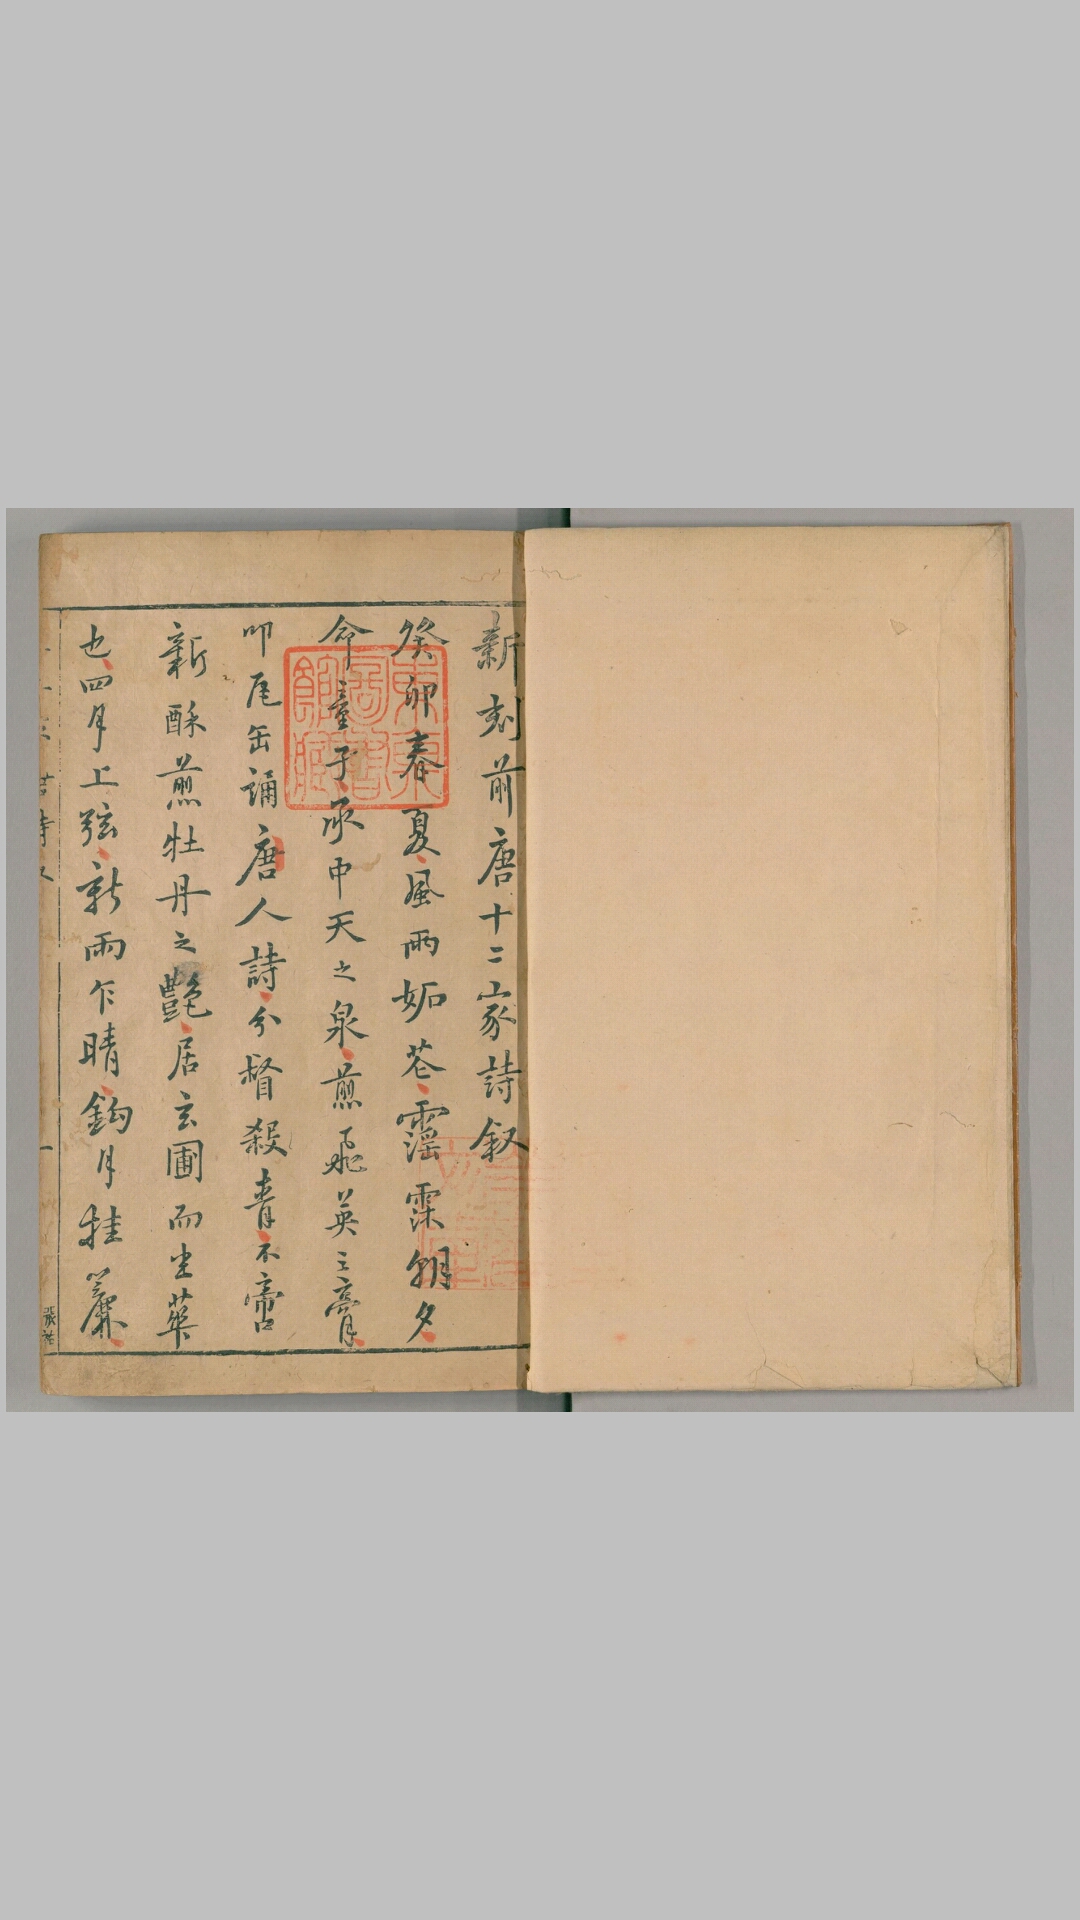 新刻前唐十二家詩叙
癸卯春夏風雨妬花霪霂朝夕
命童子承中天之泉煎飛英之膏
叩瓦缶誦唐人詩分督殺青不啻
新酥煎牡丹之艷居玄圃而坐華
也四月上弦新雨乍晴鈎月挂簾